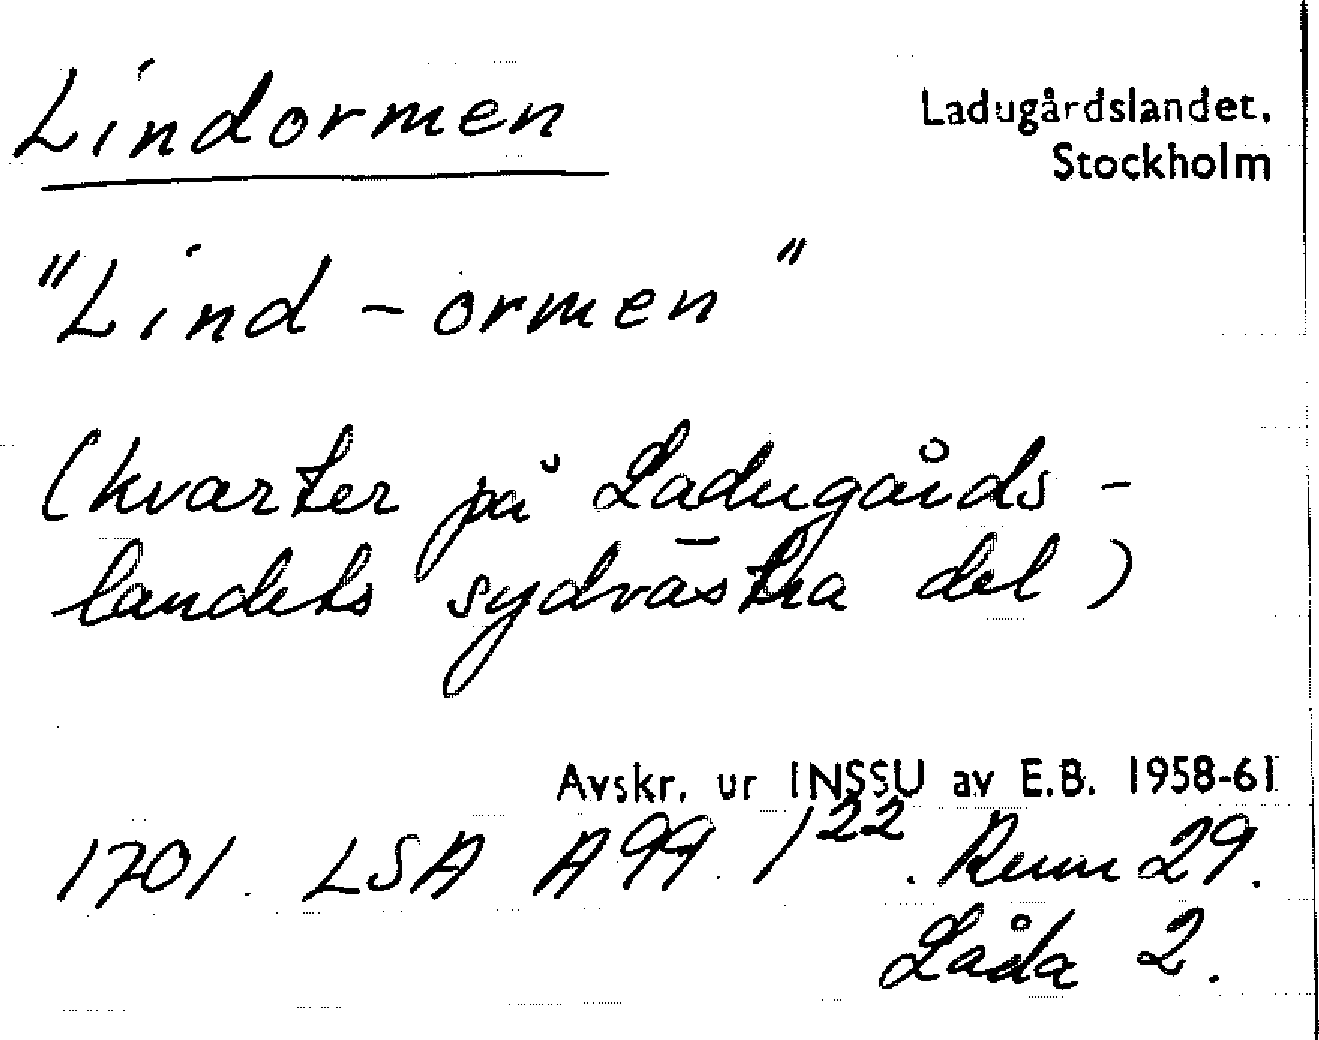 Lindormen
Ladugårdslandet,
Stockholm
"Lind-ormen"
(kvarter på Ladugårds-
landets sydvästra del)
Avskr. ur INSSU av E.B. 1958-61
1701. LSA A99. 1²². Rum 29.
Låda 2.